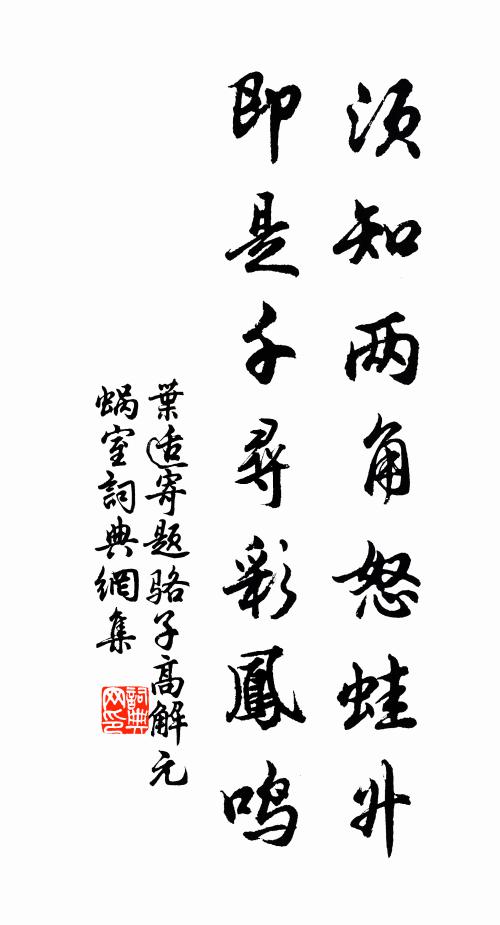 须知两角怒蛙升
即是千寻彩鳳鸣
葉适寄题骆子高解元
蝸室詞典網集
詞典网印